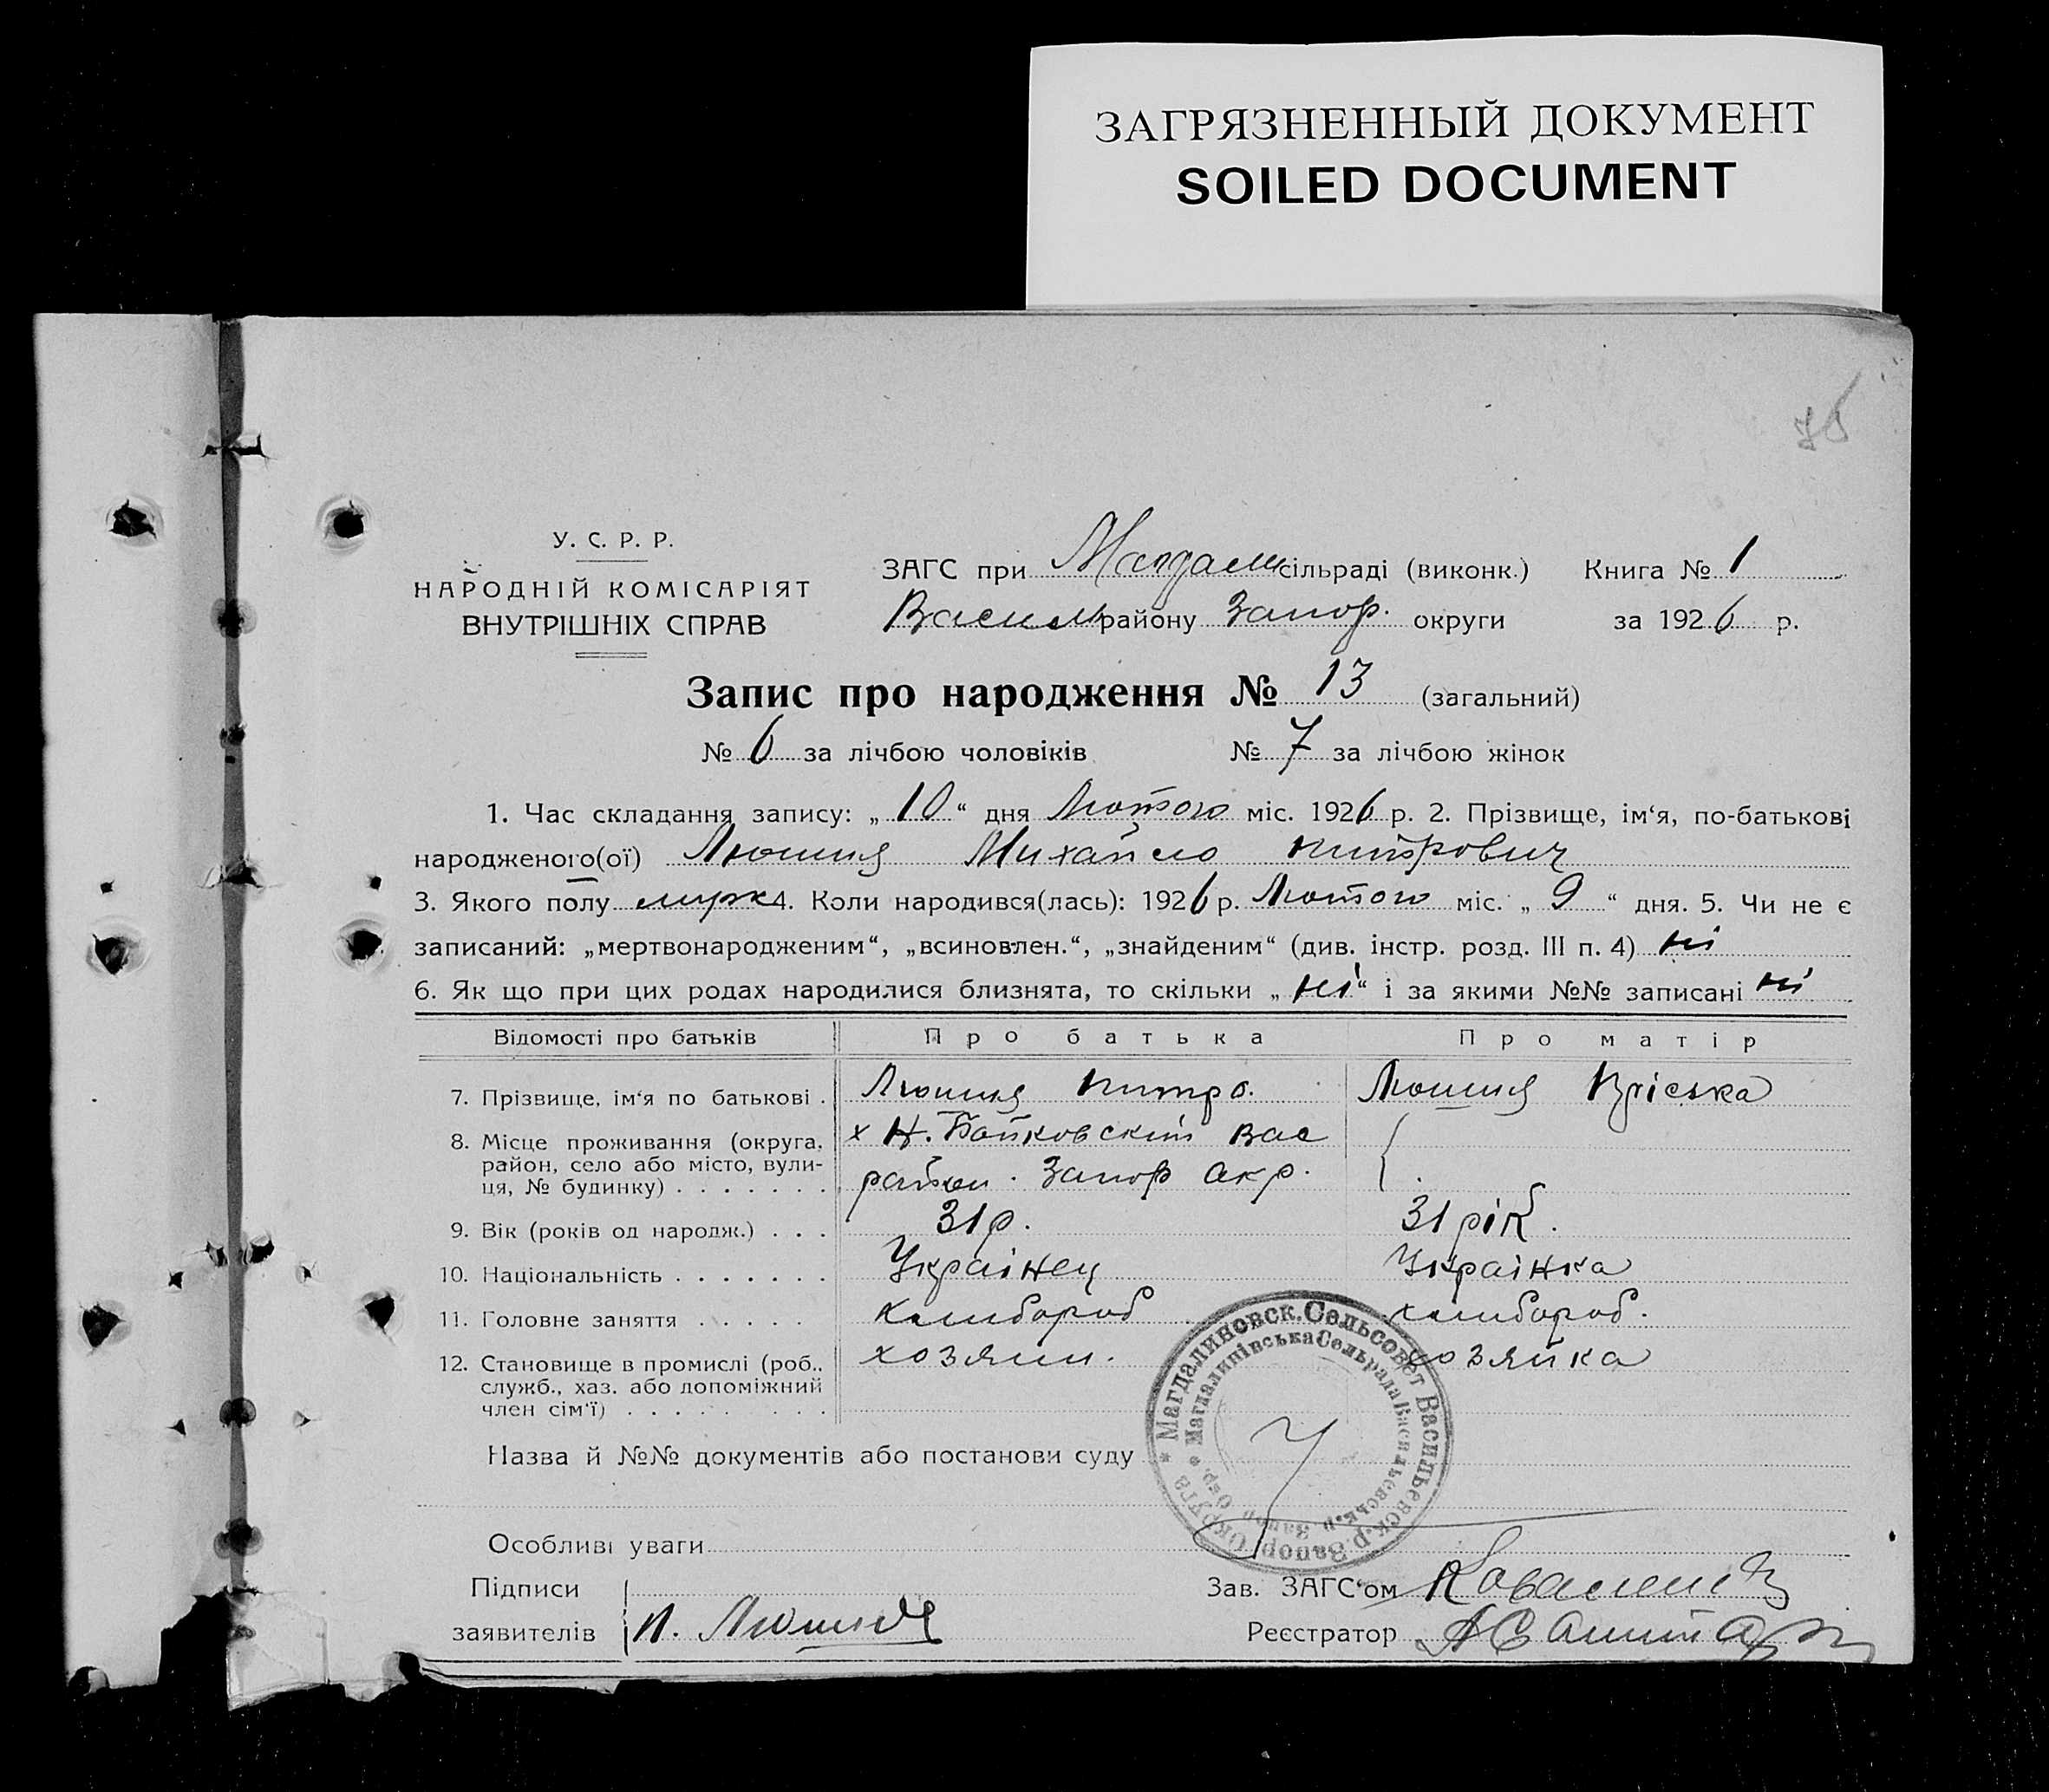 ЗАГРЯЗНЕННЫЙ ДОКУМЕНТ
SOILED DOCUMENT
У. С. Р. Р.
НАРОДНІЙ КОМІСАРІЯТ
ВНУТРІШНІХ СПРАВ
ЗАГС при Магдали сільраді (виконк.) Книга № 1
Василь району Запор. округи за 1926 р.
Запис про народження № 13 (загальний)
№ 6 за лічбою чоловіків № 7 за лічбою жінок
1. Час складання запису: „10“ дня Лютого міс. 1926 р. 2. Прізвище, ім‘я, по-батькові
народженого(ої) Михайло
3. Якого полу муж 4. Коли народився(лась): 1926 р. Лютого міс. „9“ дня. 5. Чи не є
записаний: „мертвонародженим“, „всиновлен.“, „знайденим“ (див. інстр. розд. III п. 4) ні
6. Як що при цих родах народилися близнята, то скільки „ні“ і за якими №№ записані ні
Відомості про батьків Про батька Про матір
7. Прізвище, ім‘я по батькові .
8. Місце проживання (округа, район, село або місто, вулиця, № будинку) . . . . . . .
х Н. Байковский Вас
район. Запор окр.
9. Вік (років од народж.) . . . 31 р. 31 рік.
10. Національність . . . . . . . Украінец Украінка
11. Головне заняття . . . . . хлибороб хлибороб.
12. Становище в промислі (роб., служб., хаз. або допоміжний член сім‘ї) . . . . . . . . хозяин. хозяйка
Назва й №№ документів або постанови суду
Магдалиновск. Сельсовет Васильевск. р. Запор. Округа
Магдалинівська Сельрада Васильевськ. р. Запор. Окр.
Особливі уваги
Підписи
заявителів
Зав. ЗАГС‘ом
Реєстратор